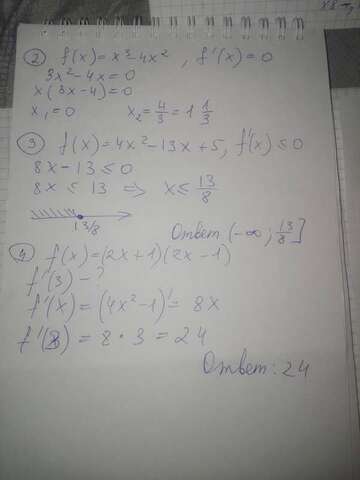 ② f(x)=x³-4x², f'(x)=0
3x²-4x=0
x(3x-4)=0
x₁=0 x₂=4/3=1 1/3
③ f(x)=4x²-13x+5, f'(x)≤0
8x-13≤0
8x≤13 ⇒ x≤13/8
13/8
Ответ (-∞; 13/8]
④ f(x)=(2x+1)(2x-1)
f'(3)-?
f'(x)=(4x²-1)'=8x
f'(3)=8·3=24
Ответ: 24